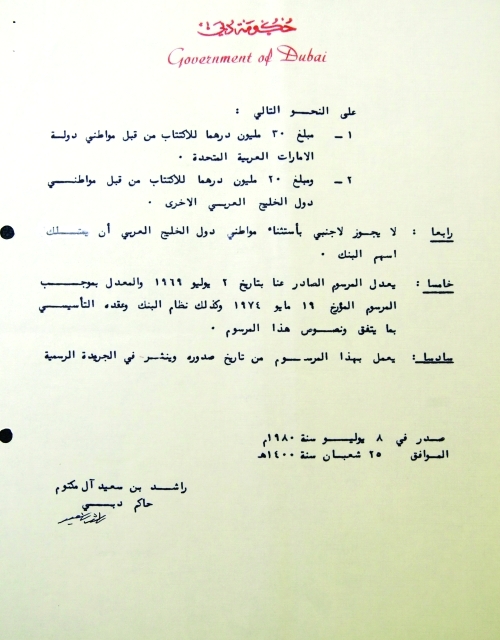 حكومة دبي
Government of Dubai
على النحو التالي :
١ – مبلغ ٣٠ مليون درهما للاكتتاب من قبل مواطني دولة
الامارات العربية المتحدة .
٢ – ومبلغ ٢٠ مليون درهما للاكتتاب من قبل مواطني
دول الخليج العربي الاخرى .
رابعا : لا يجوز لاجنبي بأستثناء مواطني دول الخليج العربي أن يمتلك
اسهم البنك .
خامسا : يعدل المرسوم الصادر عنا بتاريخ ٢ يوليو ١٩٦٩ والمعدل بموجب
المرسوم المؤرخ ١٩ مايو ١٩٧٤ وكذلك نظام البنك وعقده التأسيسي
بما يتفق ونصوص هذا المرسوم .
سادسا : يعمل بهذا المرسوم من تاريخ صدوره وينشر في الجريدة الرسمية
صدر في ٨ يوليو سنة ١٩٨٠م
الموافق ٢٥ شعبان سنة ١٤٠٠هـ
راشد بن سعيد آل مكتوم
حاكم دبي